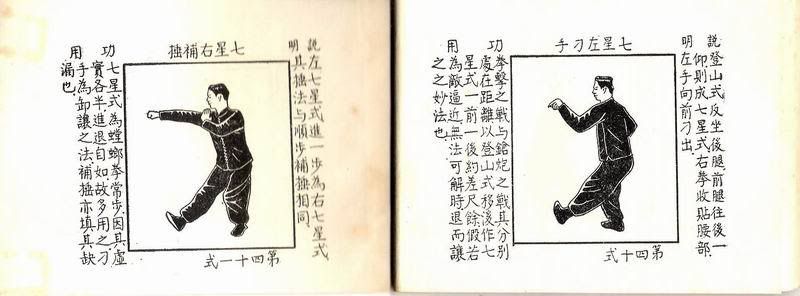 七星左刁手
說登山式反坐後腿前腿往後一
仰則成七星式右拳收貼腰部
明左手向前刁出
功拳擊之戰與鎗炮之戰其分別
處在距離以登山式移後作七
星式一前一後約差尺餘假若
用為敵逼近無法可解時退而讓
之之妙法也
第四十式
七星右補捶
說左七星式進一步為右七星式
明其捶法與順步補捶相同
功七星式為螳螂拳常步因其虛
實各半進退自如故多用之刁
手為卸讓之法補捶亦填其缺
用漏也
第四十一式